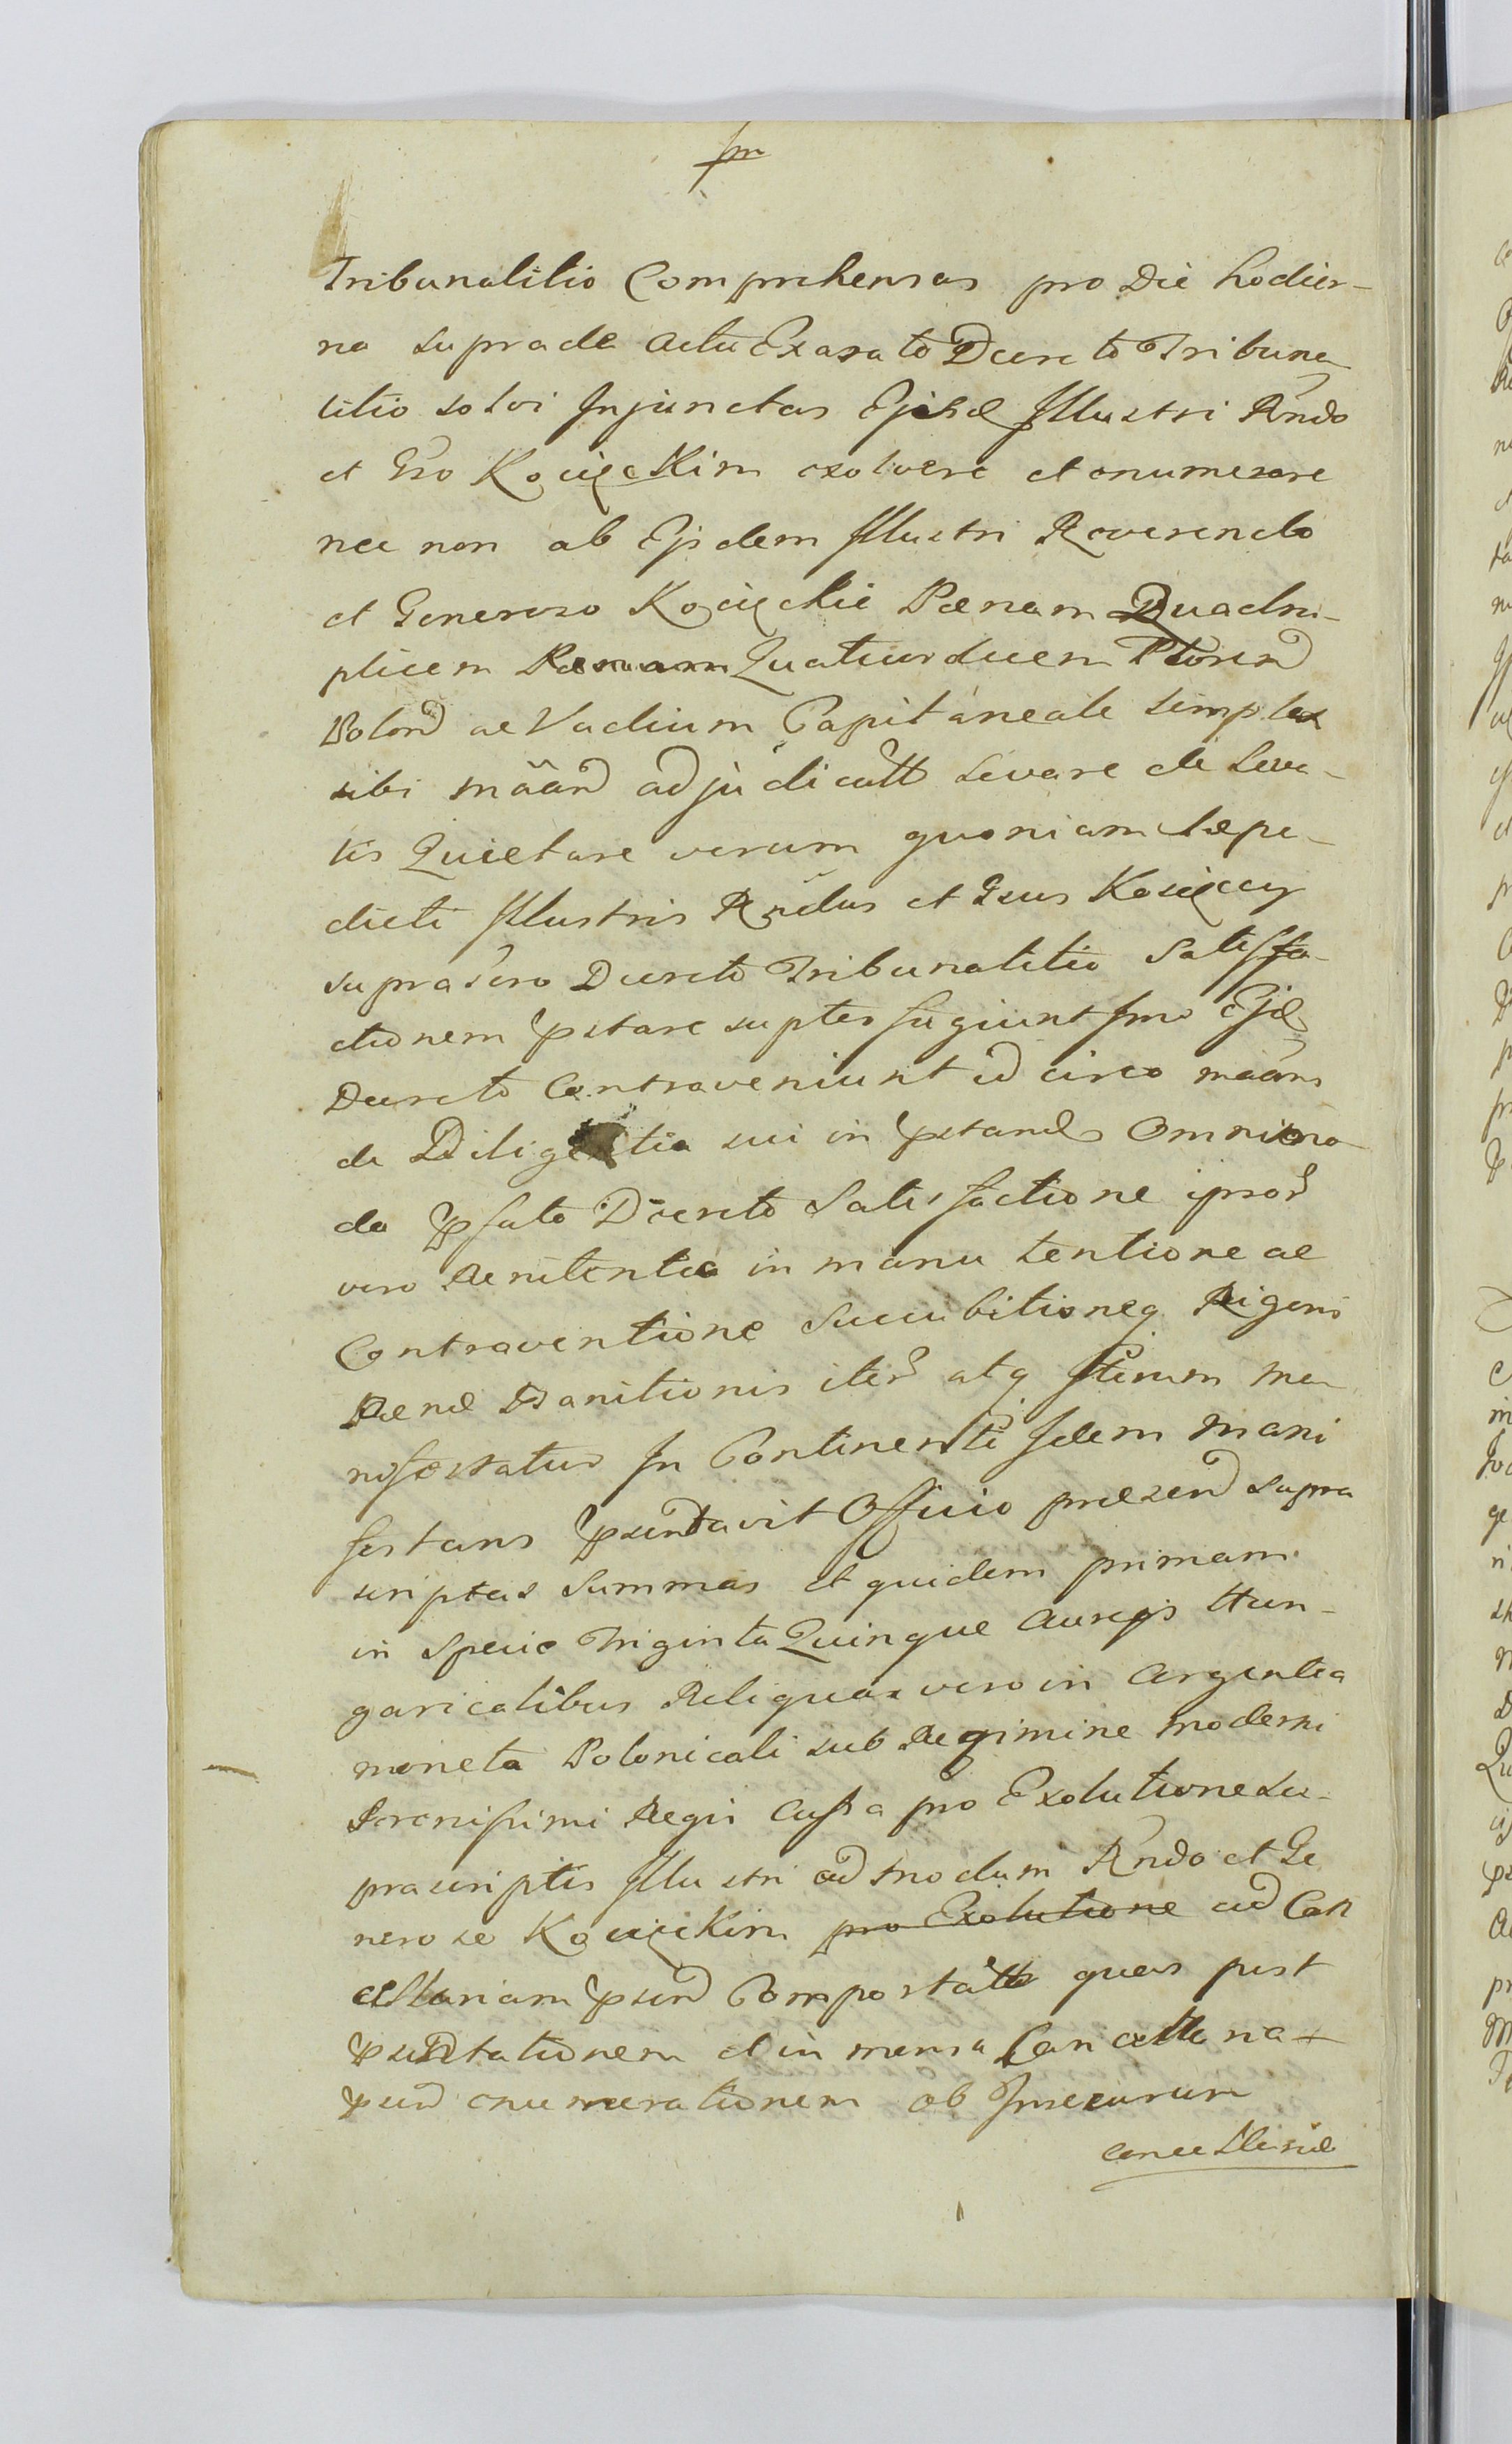 Tribunalitio Comprehensas pro Die hodier-
na suprade actu Exarato Decreto Tribuna
litio solvi Injunctas Ejsd Illustri Rndo
et Gso Kocięckim exolvere et enumerare
nec non ab Ejsdem Illustri Reverendo
et Generoso Kocięckie Pœnam Quadru-
plicem Quatuordecem Floren
Polon ac Vadium Capitaneale simplex
sibi mãan adjudicatt Levare de Leva-
tis Quietare verum quoniam sæpe-
dicti Illustris Rndus et Gsus Kocięccy
suprasero Decreto Tribunalitio Satisfa-
ctionem pstare supterfugiunt Imo Ejd
Decreto Contraveniunt id circo maans
de Diligentia sui in pstand Omnimo
da pfato Decreto Satisfactione ipsor
vero Renitentia in manu tentione ac
Contraventione Succubitioneq Rigoris
Pænæ Banitionis iter atq Iterum ma
nifestatur In Continenti Idem Mani
festans psentavit Officio præsen supra
scriptas Summas et quidem primam
in Specie Triginta Quinque Aureis Hun-
garicalibus Reliquas vero in Argentea
moneta Polonicali sub Regimine moderni
Serenissimi Regis Cussa pro Exolutione su-
prascriptis Illustri admodum Rndo et Ge
neroso Kocięckim pro Exolutione ad Can
cellariam psen Comportatt quas post
psentationem et in mensa Cancellaria
psen enumerationem ob Insecuram
Cancellariæ